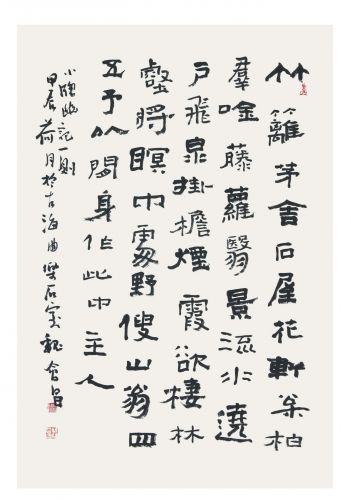 竹籬茅舍石屋花軒枩柏
羣吟藤蘿翳景流水遶
戶飛泉掛檐煙霞欲棲林
壑將瞑中處野傁山翁四
五予以閒身作此中主人
小牕幽記一則
甲辰荷月於古海曲樂石室魏會昌